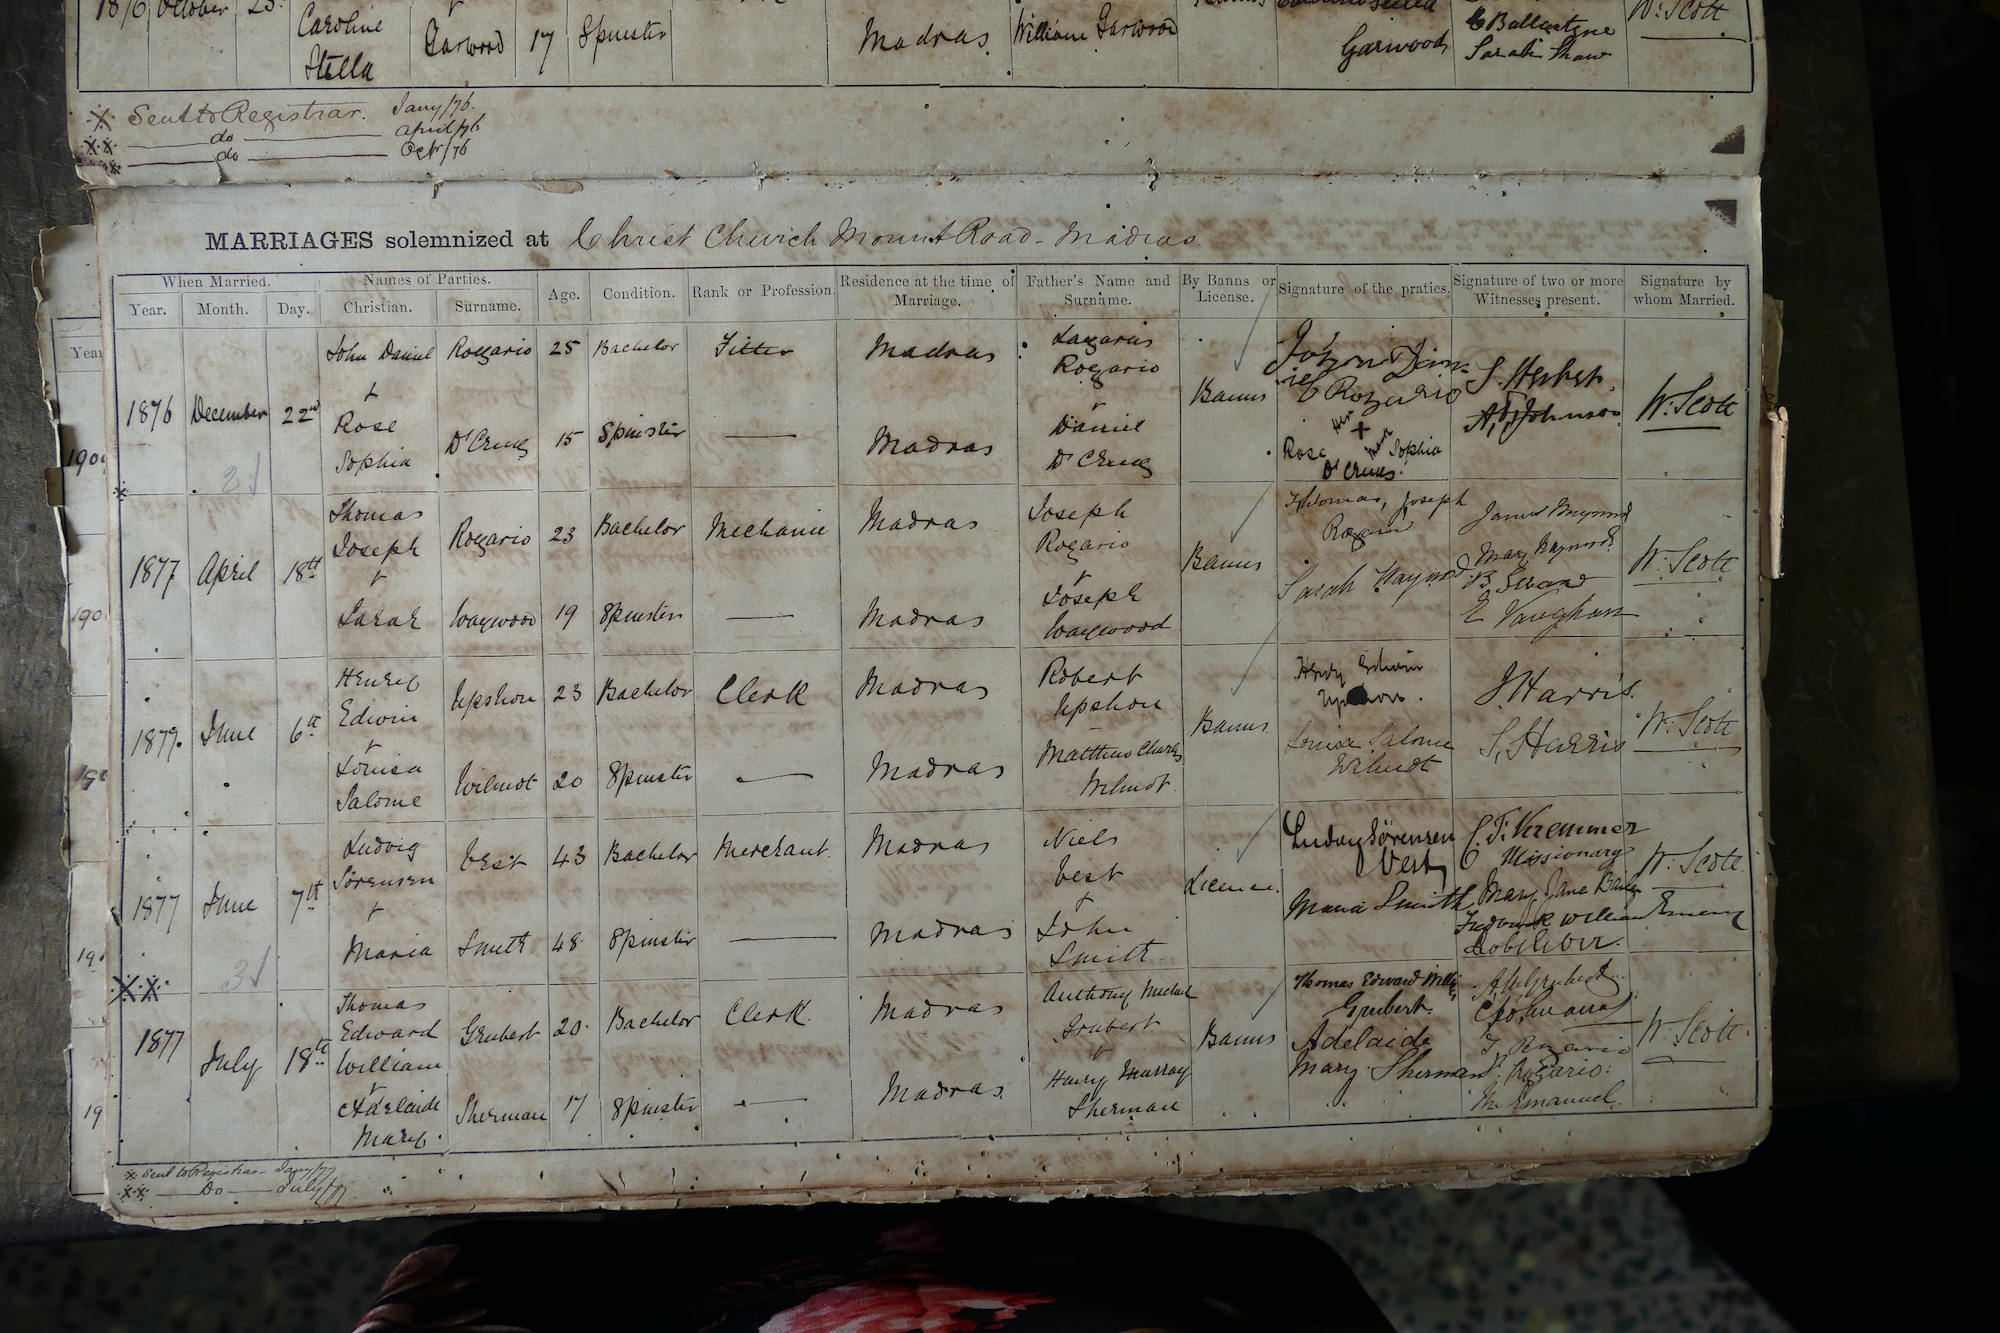 1876 October 23.
Caroline Garwood 17 Spinster Madras William Garwood Garwood C Ballantyne W. Scott
Stella Sarah Shaw
X Sent to Registrar. Jany/76.
XX do April/76
do Octr/76
MARRIAGES solemnized at Christ Church Mount Road - Madras
When Married. Names of Parties. Age. Condition. Rank or Profession. Residence at the time of Marriage. Father's Name and Surname. By Banns or License. Signature of the praties. Signature of two or more Witnesses present. Signature by whom Married.
Year. Month. Day. Christian. Surname.
John Daniel Rozario 25 Bachelor Fitter Madras Lazarus Rozario John Daniel Rozario S. Herbert
1876 December 22nd + Banns W. Scott
Rose Sophia D'Cruz 15 Spinster — Madras Daniel D'Cruz Rose her + mark Sophia D'Cruz. A. Johnson
Thomas Joseph Rozario 23 Bachelor Mechanic Madras Joseph Rozario Thomas, Joseph Rozario James Waywood
1877 April 18th + Banns Mary Waywood W. Scott
Sarah Waywood 19 Spinster — Madras Joseph Waywood Sarah Waywood E Vaughan
Henry Edwin Upshon 23 Bachelor Clerk Madras Robert Upshon Henry Edwin Upshon. J Harris.
1877. June 6th + Banns W. Scott
Louisa Salome Wilmot 20 Spinster — Madras Matthew Charles Wilmot Louisa Salome Wilmot S. Harris
Ludvig Sörensen Vest 43 Bachelor Merchant. Madras Niels Vest Ludvig Sörensen Vest C. F. Kremmer Missionary
1877 June 7th + License. W. Scott.
Maria Smith 48 Spinster — Madras John Smith Maria Smith Mary Jane Frederick William Emery
Thomas Edward William Grubert 20 Bachelor Clerk. Madras Anthony Michael Grubert Thomas Edward Willm Grubert.
1877 July 18th + Banns W. Scott
Adelaide Mary Sherman 17 Spinster — Madras. Harry Murray Sherman Adelaide Mary Sherman Rozario. M. Emanuel
X Sent to Registrar - Jany/77
XX — Do — July/77